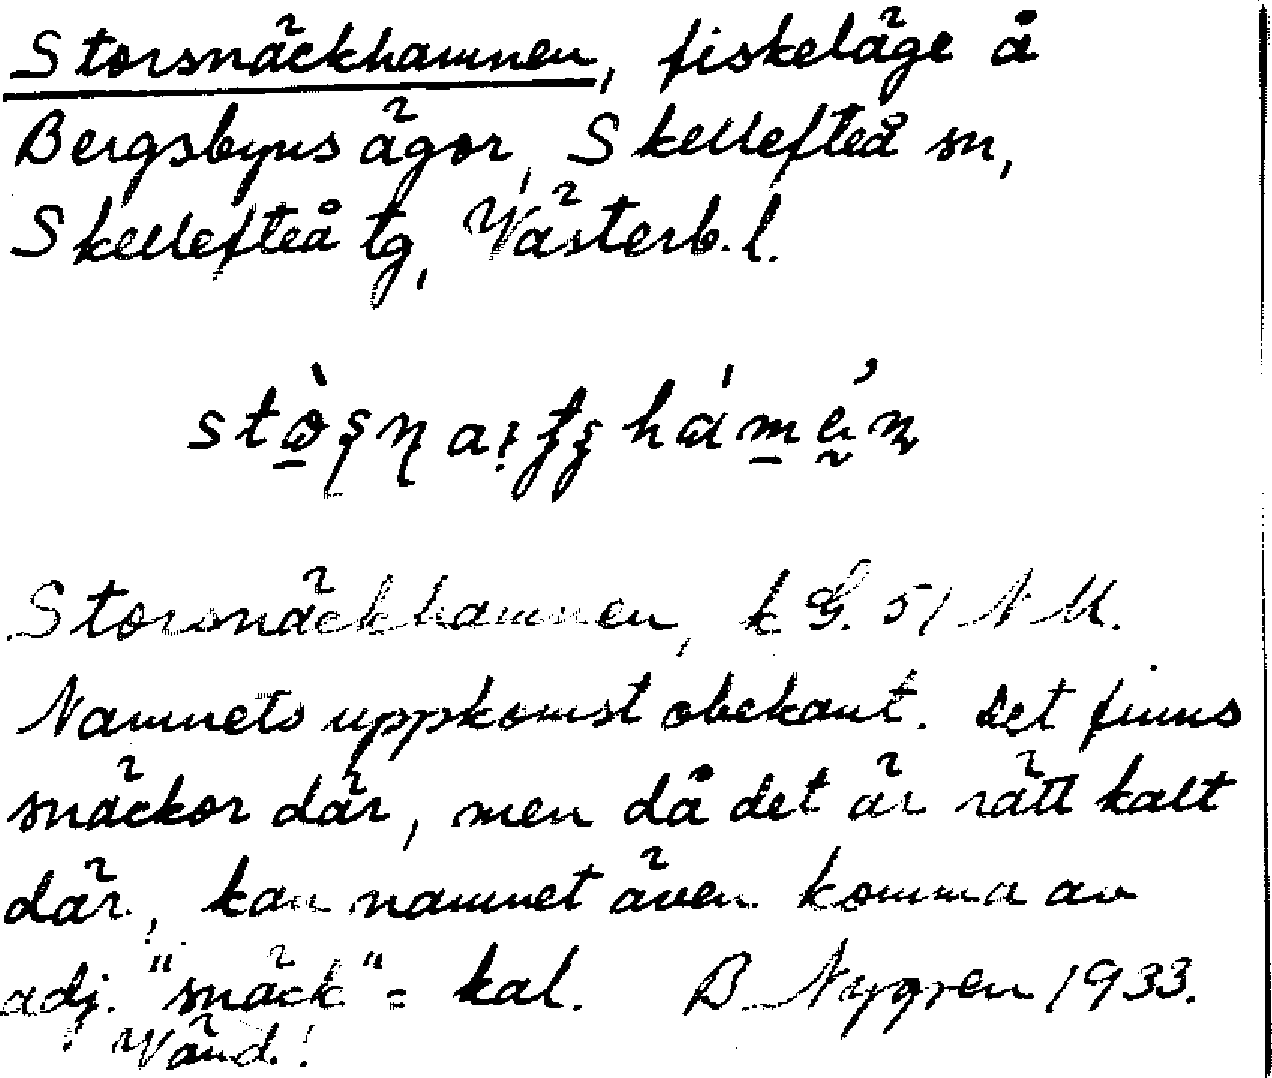 Storsnäckhamnen, fiskeläge å
Bergsbyns ägor, Skellefteå sn,
Skellefteå tg, Västerb. l.
Storsnäckhamnen, k G. 51 N M.
Namnets uppkomst obekant. Det finns
snäckor där, men då det är rätt kalt
där, kan namnet även komma av
adj. "snäck" = kal. B Nygren 1933.
Vänd!